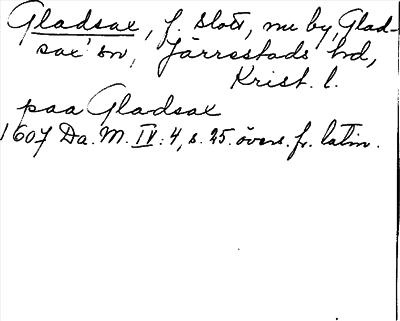 Gladsax, f. slott, nu by, Glad-
sax' sn, Järrestads hd,
Krist. l.
paa Gladsax
1607 Da. M. IV: 4, s. 25. övers. fr. latin.